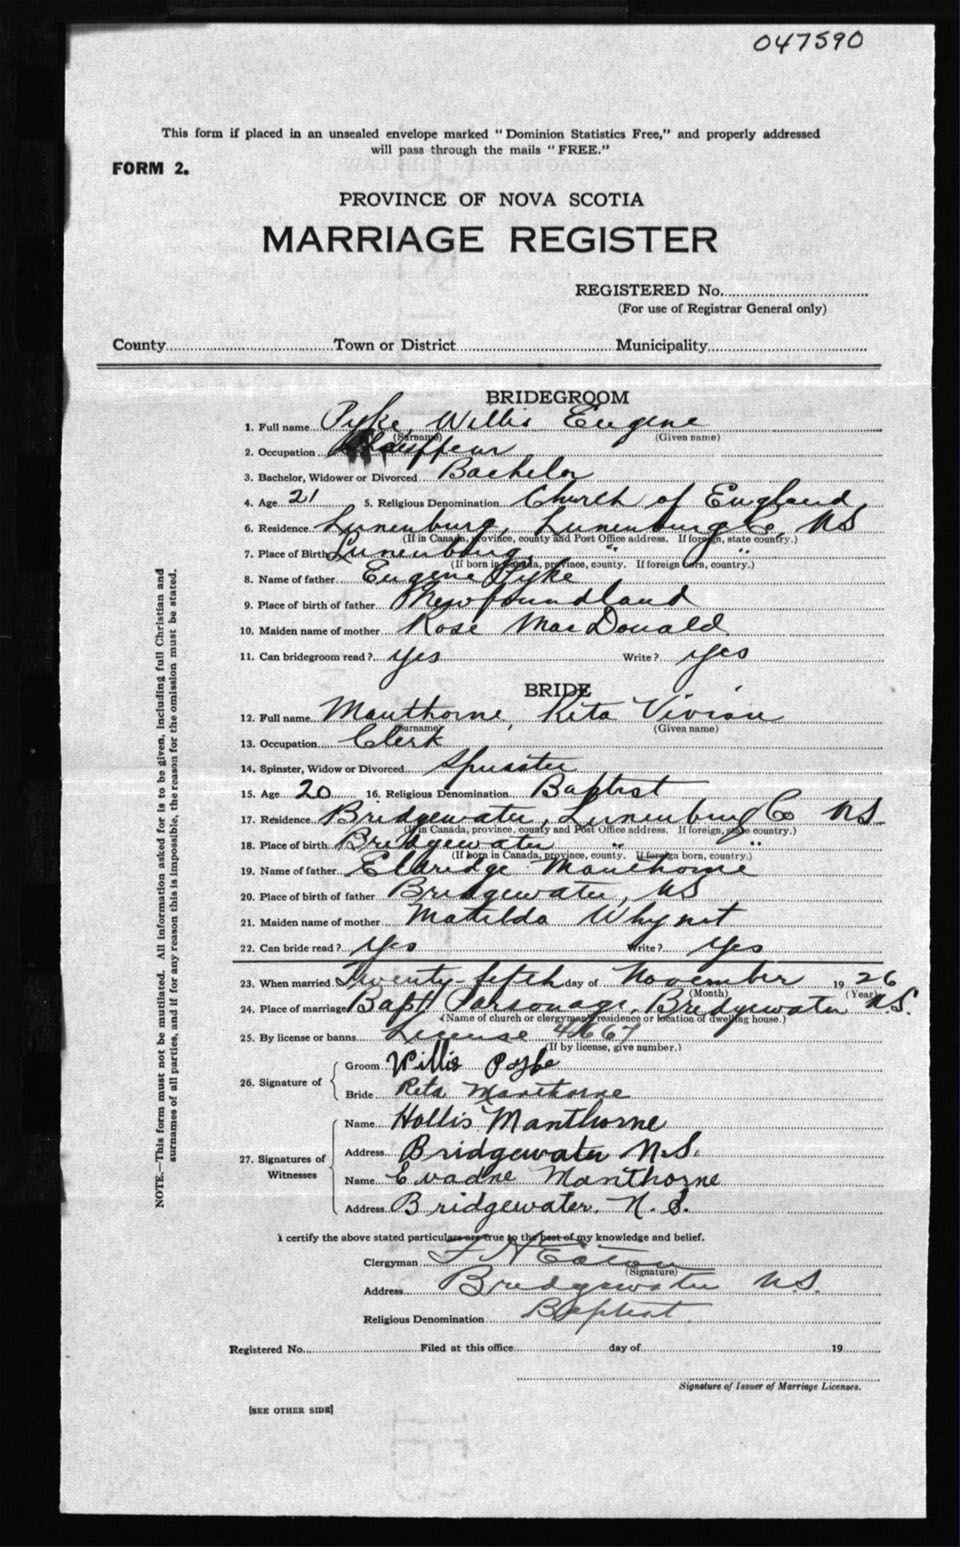 047590
This form if placed in an unsealed envelope marked "Dominion Statistics Free," and properly addressed
will pass through the mails "FREE."
FORM 2.
PROVINCE OF NOVA SCOTIA
MARRIAGE REGISTER
REGISTERED No.
(For use of Registrar General only)
County Town or District Municipality
BRIDEGROOM
1. Full name Pyke, Willis Eugene
(Surname) (Given name)
2. Occupation Chauffeur
3. Bachelor, Widower or Divorced Bachelor
4. Age 21 5. Religious Denomination Church of England
6. Residence Lunenburg, Lunenburg Co, NS
(If in Canada, province, county and Post Office address. If foreign, state country.)
7. Place of Birth Lunenburg, " "
(If born in Canada, province, county. If foreign born, country.)
8. Name of father Eugene Pyke
9. Place of birth of father Newfoundland
10. Maiden name of mother Rose MacDonald
11. Can bridegroom read? yes Write? yes
BRIDE
12. Full name Manthorne, Rita Vivian
(Surname) (Given name)
13. Occupation Clerk
14. Spinster, Widow or Divorced Spinster
15. Age 20 16. Religious Denomination Baptist
17. Residence Bridgewater, Lunenburg Co NS
(If in Canada, province, county and Post Office address. If foreign, state country.)
18. Place of birth Bridgewater " "
(If born in Canada, province, county. If foreign born, country.)
19. Name of father Elbridge Manthorne
20. Place of birth of father Bridgewater, NS
21. Maiden name of mother Matilda Whynot
22. Can bride read? yes Write? yes
23. When married Twenty-fifth day of November 1926
(Month) (Year)
24. Place of marriage Bapt Parsonage, Bridgewater NS.
(Name of church or clergyman's residence or location of dwelling house.)
25. By license or banns License 4667
(If by license, give number.)
26. Signature of
Groom Willis Pyke
Bride Rita Manthorne
27. Signatures of Witnesses
Name Hollis Manthorne
Address Bridgewater N.S.
Name Evadne Manthorne
Address Bridgewater. N. S.
I certify the above stated particulars are true to the best of my knowledge and belief.
Clergyman F H Eaton
(Signature)
Address Bridgewater N.S.
Religious Denomination Baptist.
Registered No. Filed at this office day of 19
Signature of Issuer of Marriage Licenses.
[SEE OTHER SIDE]
NOTE.—This form must not be mutilated. All information asked for is to be given, including full Christian and
surnames of all parties, and if for any reason this is impossible, the reason for the omission must be stated.